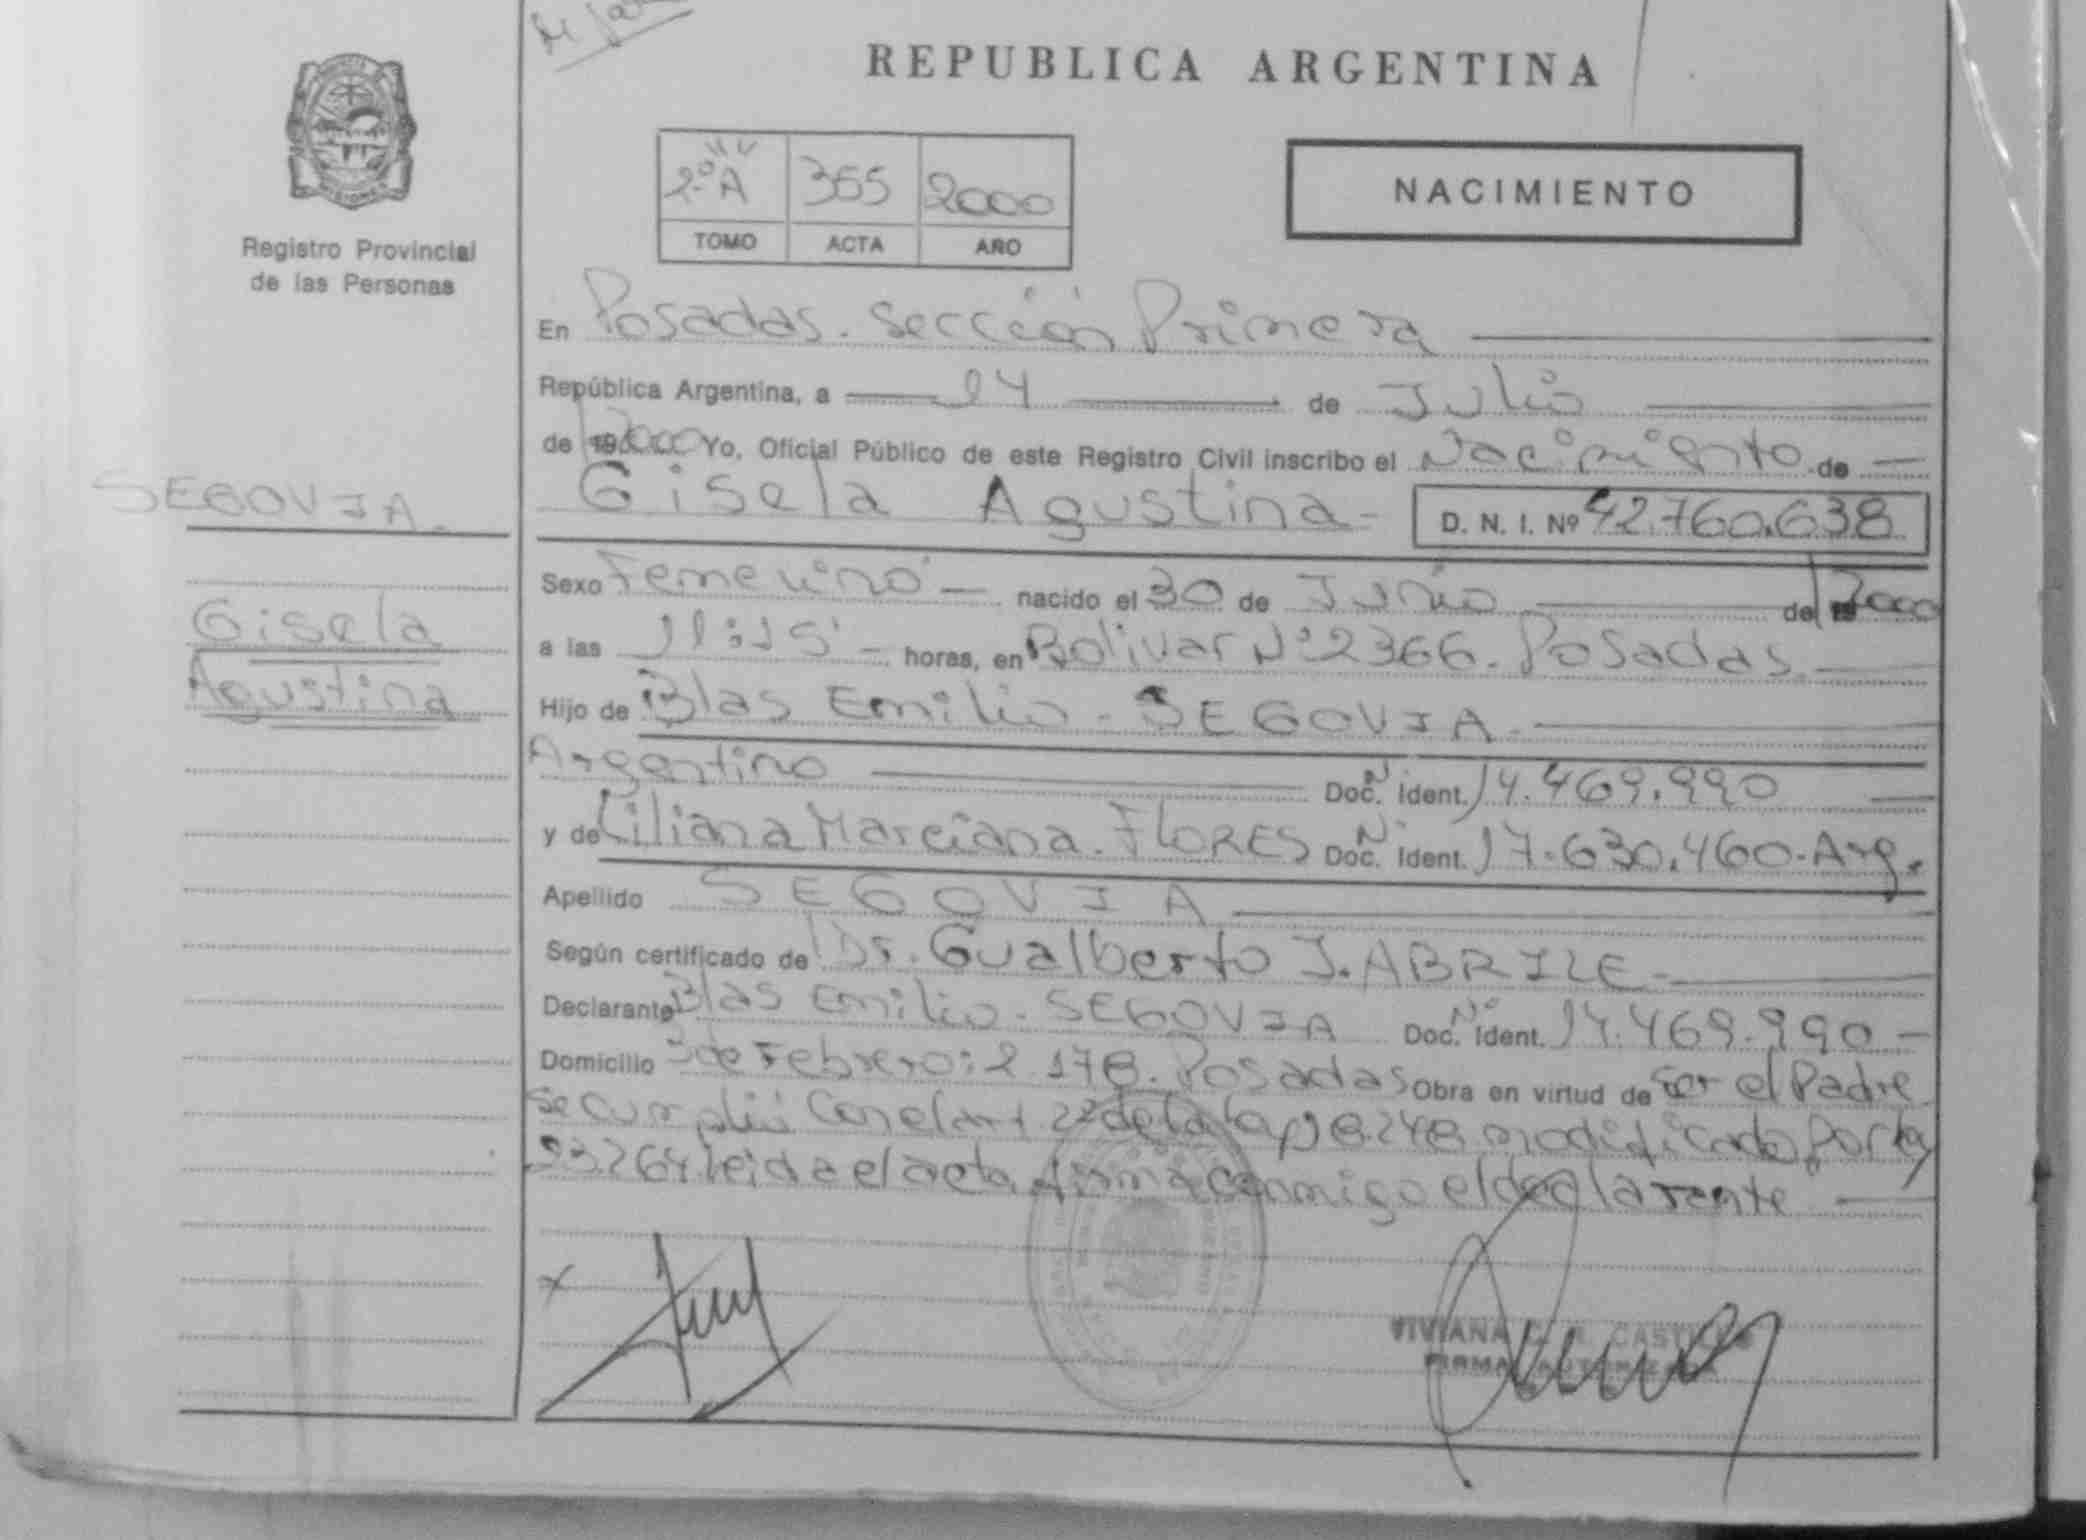 REPUBLICA ARGENTINA
Registro Provincial
de las Personas
2º A 355 2000
TOMO ACTA AÑO
NACIMIENTO
En Posadas. Sección Primera
República Argentina, a 14 de Julio
de 2000 Yo, Oficial Público de este Registro Civil inscribo el Nacimiento de
SEGOVIA.
Gisela Agustina - D. N. I. Nº 42.760.638
Sexo Femenino - nacido el 30 de Junio de 2000
Gisela
Agustina
a las 11:15 - horas, en Bolivar Nº 2366. Posadas.
Hijo de Blas Emilio - SEGOVIA -
Argentino Doc. Nº Ident. 14.469.990
y de Liliana Marciana. FLORES Doc. Nº Ident. 17.630.460. Arg.
Apellido SEGOVIA
Según certificado de Dr. Gualberto J. ABRILE -
Declarante Blas Emilio - SEGOVIA Doc. Nº Ident. 14.469.990 -
Domicilio 3 de Febrero: 2.178. Posadas Obra en virtud de Ser el Padre
Se cumplió con el art 2º de la Ley 18.248 modificado Por Ley
23.264 leida el acta, firma conmigo el declarante
VIVIANA R. CASTILLO
FIRMA AUTORIZADA